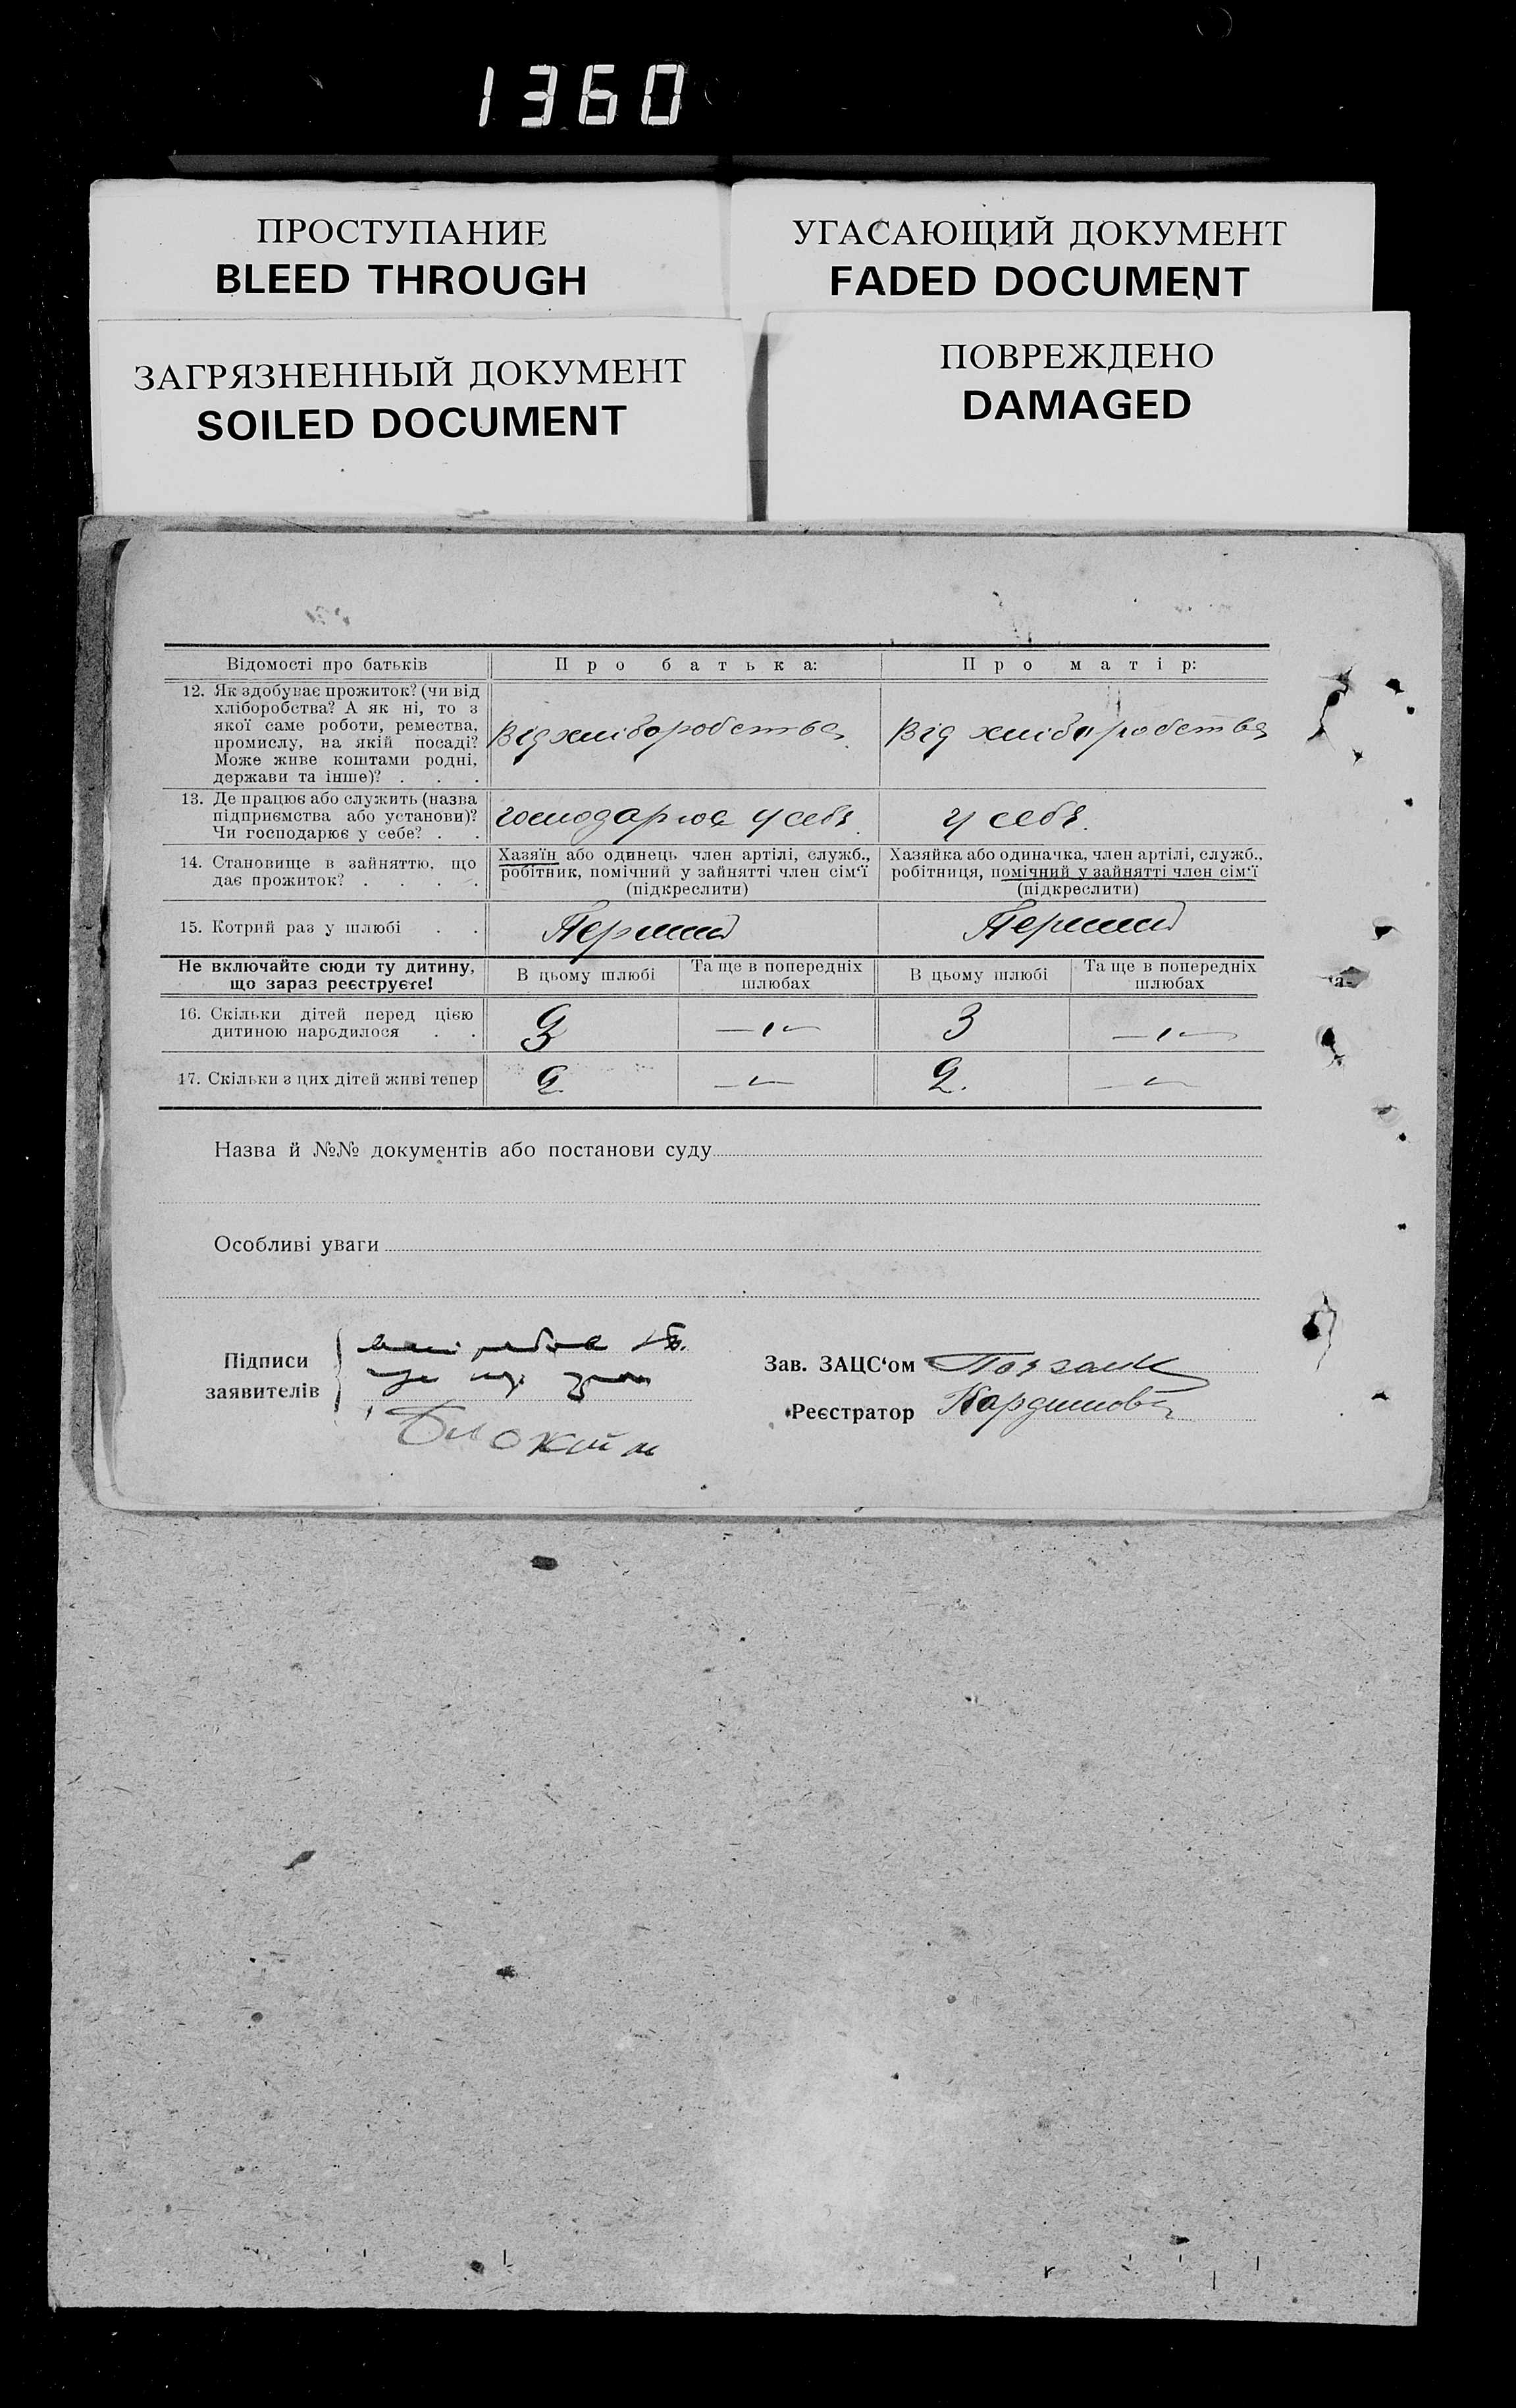 1360
ПРОСТУПАНИЕ
BLEED THROUGH
УГАСАЮЩИЙ ДОКУМЕНТ
FADED DOCUMENT
ЗАГРЯЗНЕННЫЙ ДОКУМЕНТ
SOILED DOCUMENT
ПОВРЕЖДЕНО
DAMAGED
Відомості про батьків
Про батька:
Про матір:
12. Як здобуває прожиток? (чи від
хліборобства? А як ні, то з
якої саме роботи, ремества,
промислу, на якій посаді?
Може живе коштами родні,
держави та інше)? . . .
Від хліборобства
Від хліборобства
13. Де працює або служить (назва
підприємства або установи)?
Чи господарює у себе? . .
господарює у себе
у себе.
14. Становище в зайняттю, що
дає прожиток? . . . .
Хазяїн або одинець член артілі, служб.,
робітник, помічний у зайнятті член сім'ї
(підкреслити)
Хазяйка або одиначка, член артілі, служб.,
робітниця, помічний у зайнятті член сім'ї
(підкреслити)
15. Котрий раз у шлюбі . .
Перший
Перший
Не включайте сюди ту дитину,
що зараз реєструєте!
В цьому шлюбі
Та ще в попередніх
шлюбах
В цьому шлюбі
Та ще в попередніх
шлюбах
16. Скільки дітей перед цією
дитиною народилося . .
3
—"—
3
—"—
17. Скільки з цих дітей живі тепер
2
—"—
2.
—"—
Назва й №№ документів або постанови суду
Особливі уваги
Підписи
заявителів
Зав. ЗАЦС'ом
Реєстратор